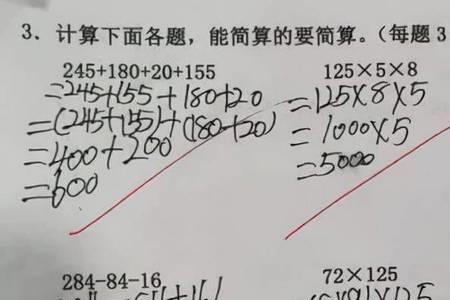 3、计算下面各题，能简算的要简算。（每题 3
245+180+20+155
=245+155+180+20
=(245+155)+(180+20)
=400+200
=600
125×5×8
=125×8×5
=1000×5
=5000
284-84-16
72×125